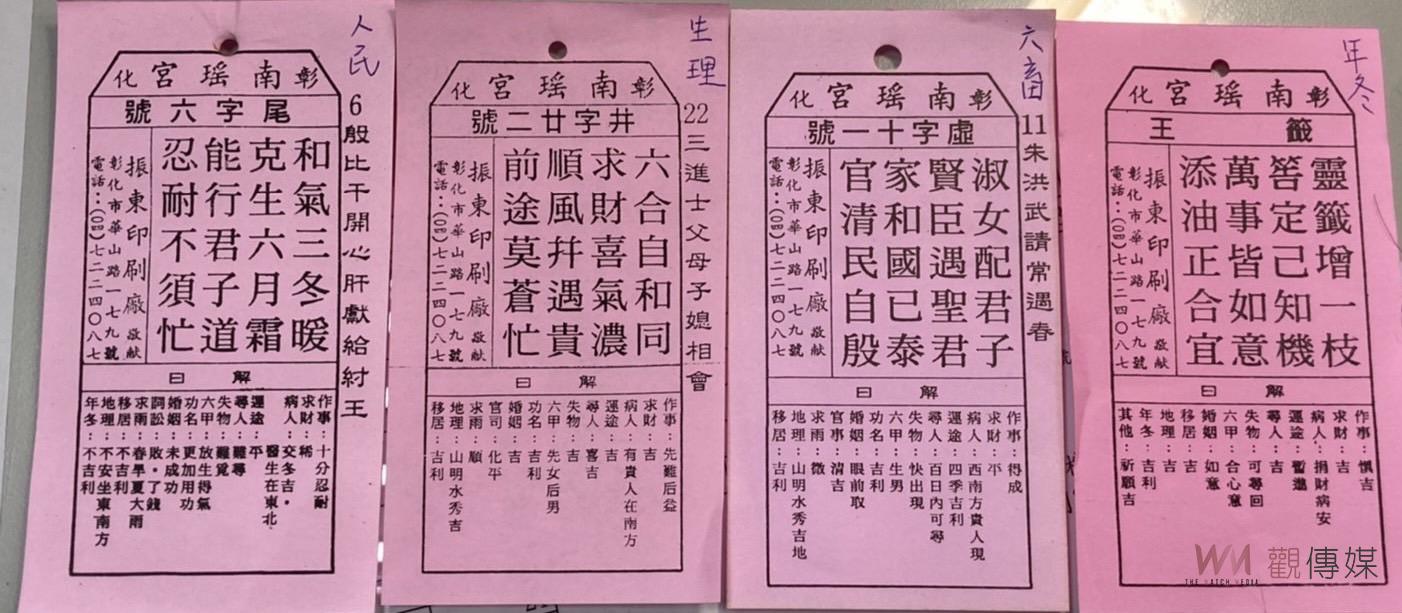 人民
6殷比干開心肝獻給紂王
彰南瑤宮化
尾字六號
和氣三冬暖
克生六月霜
能行君子道
忍耐不須忙
振東印刷廠敬献
彰化市華山路一七九號
電話：(〇四)七二二四〇八七
解曰
作事：十分忍耐
求財：稀
病人：交冬吉。醫生在東北
運途：平
尋人：難尋
失物：難覓
六甲：放生得氣
功名：更加用功
婚姻：未成功
詞訟：敗。了錢
求雨：春旱夏大雨
移居：不吉利
地理：不安坐東南方
年冬：不吉利
生理
22三進士父母子媳相會
彰南瑤宮化
井字廿二號
六合自和同
求財喜氣濃
順風幷遇貴
前途莫蒼忙
振東印刷廠敬献
彰化市華山路一七九號
電話：(〇四)七二二四〇八七
解曰
作事：先難后益
求財：吉
病人：有貴人在南方
運途：吉
尋人：喜吉
失物：吉
六甲：先女后男
功名：吉利
婚姻：吉
官司：化平
求雨：順
地理：山明水秀吉
移居：吉利
六畜
11朱洪武請常遇春
彰南瑤宮化
虛字十一號
淑女配君子
賢臣遇聖君
家和國已泰
官清民自殷
振東印刷廠敬献
彰化市華山路一七九號
電話：(〇四)七二二四〇八七
解曰
作事：得成
求財：平
病人：西南方貴人現
運途：四季吉利
尋人：百日內可尋
失物：快出現
六甲：生男
功名：吉利
婚姻：眼前取
官事：清吉
求雨：微
地理：山明水秀吉地
移居：吉利
年冬
彰南瑤宮化
籤王
靈籤增一枝
筶定己知機
萬事皆如意
添油正合宜
振東印刷廠敬献
彰化市華山路一七九號
電話：(〇四)七二二四〇八七
解曰
作事：慎吉
求財：吉
病人：捐財病安
運途：暫進
尋人：吉
失物：可尋回
六甲：合心意
婚姻：如意
移居：吉
地理：吉
年冬：吉利
其他：祈願吉
WM 觀傳媒
THE WATCH MEDIA